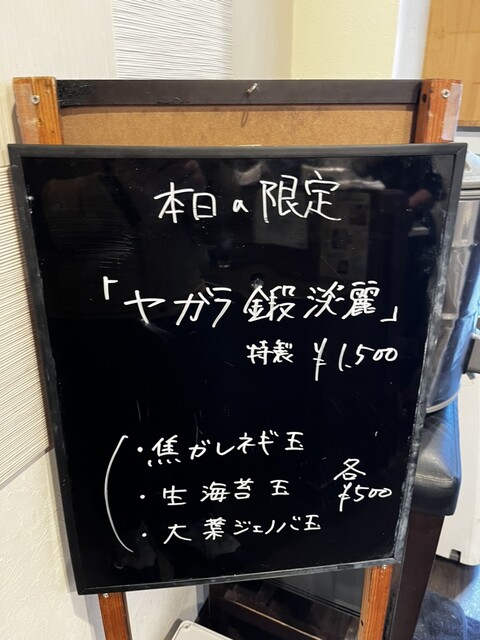 本日の限定
「ヤガラ鍛淡麗」
特製 ¥1,500
・焦がしネギ玉
・生海苔玉
・大葉ジェノバ玉
各
¥500